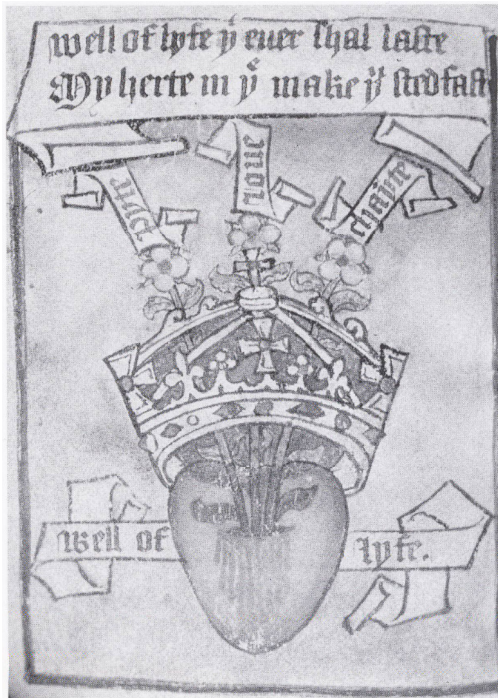 well of lyfe yͭ euer shal laste
My herte in yͤ make yͭ stedfast
pyte
loue
charite
well of lyfe.